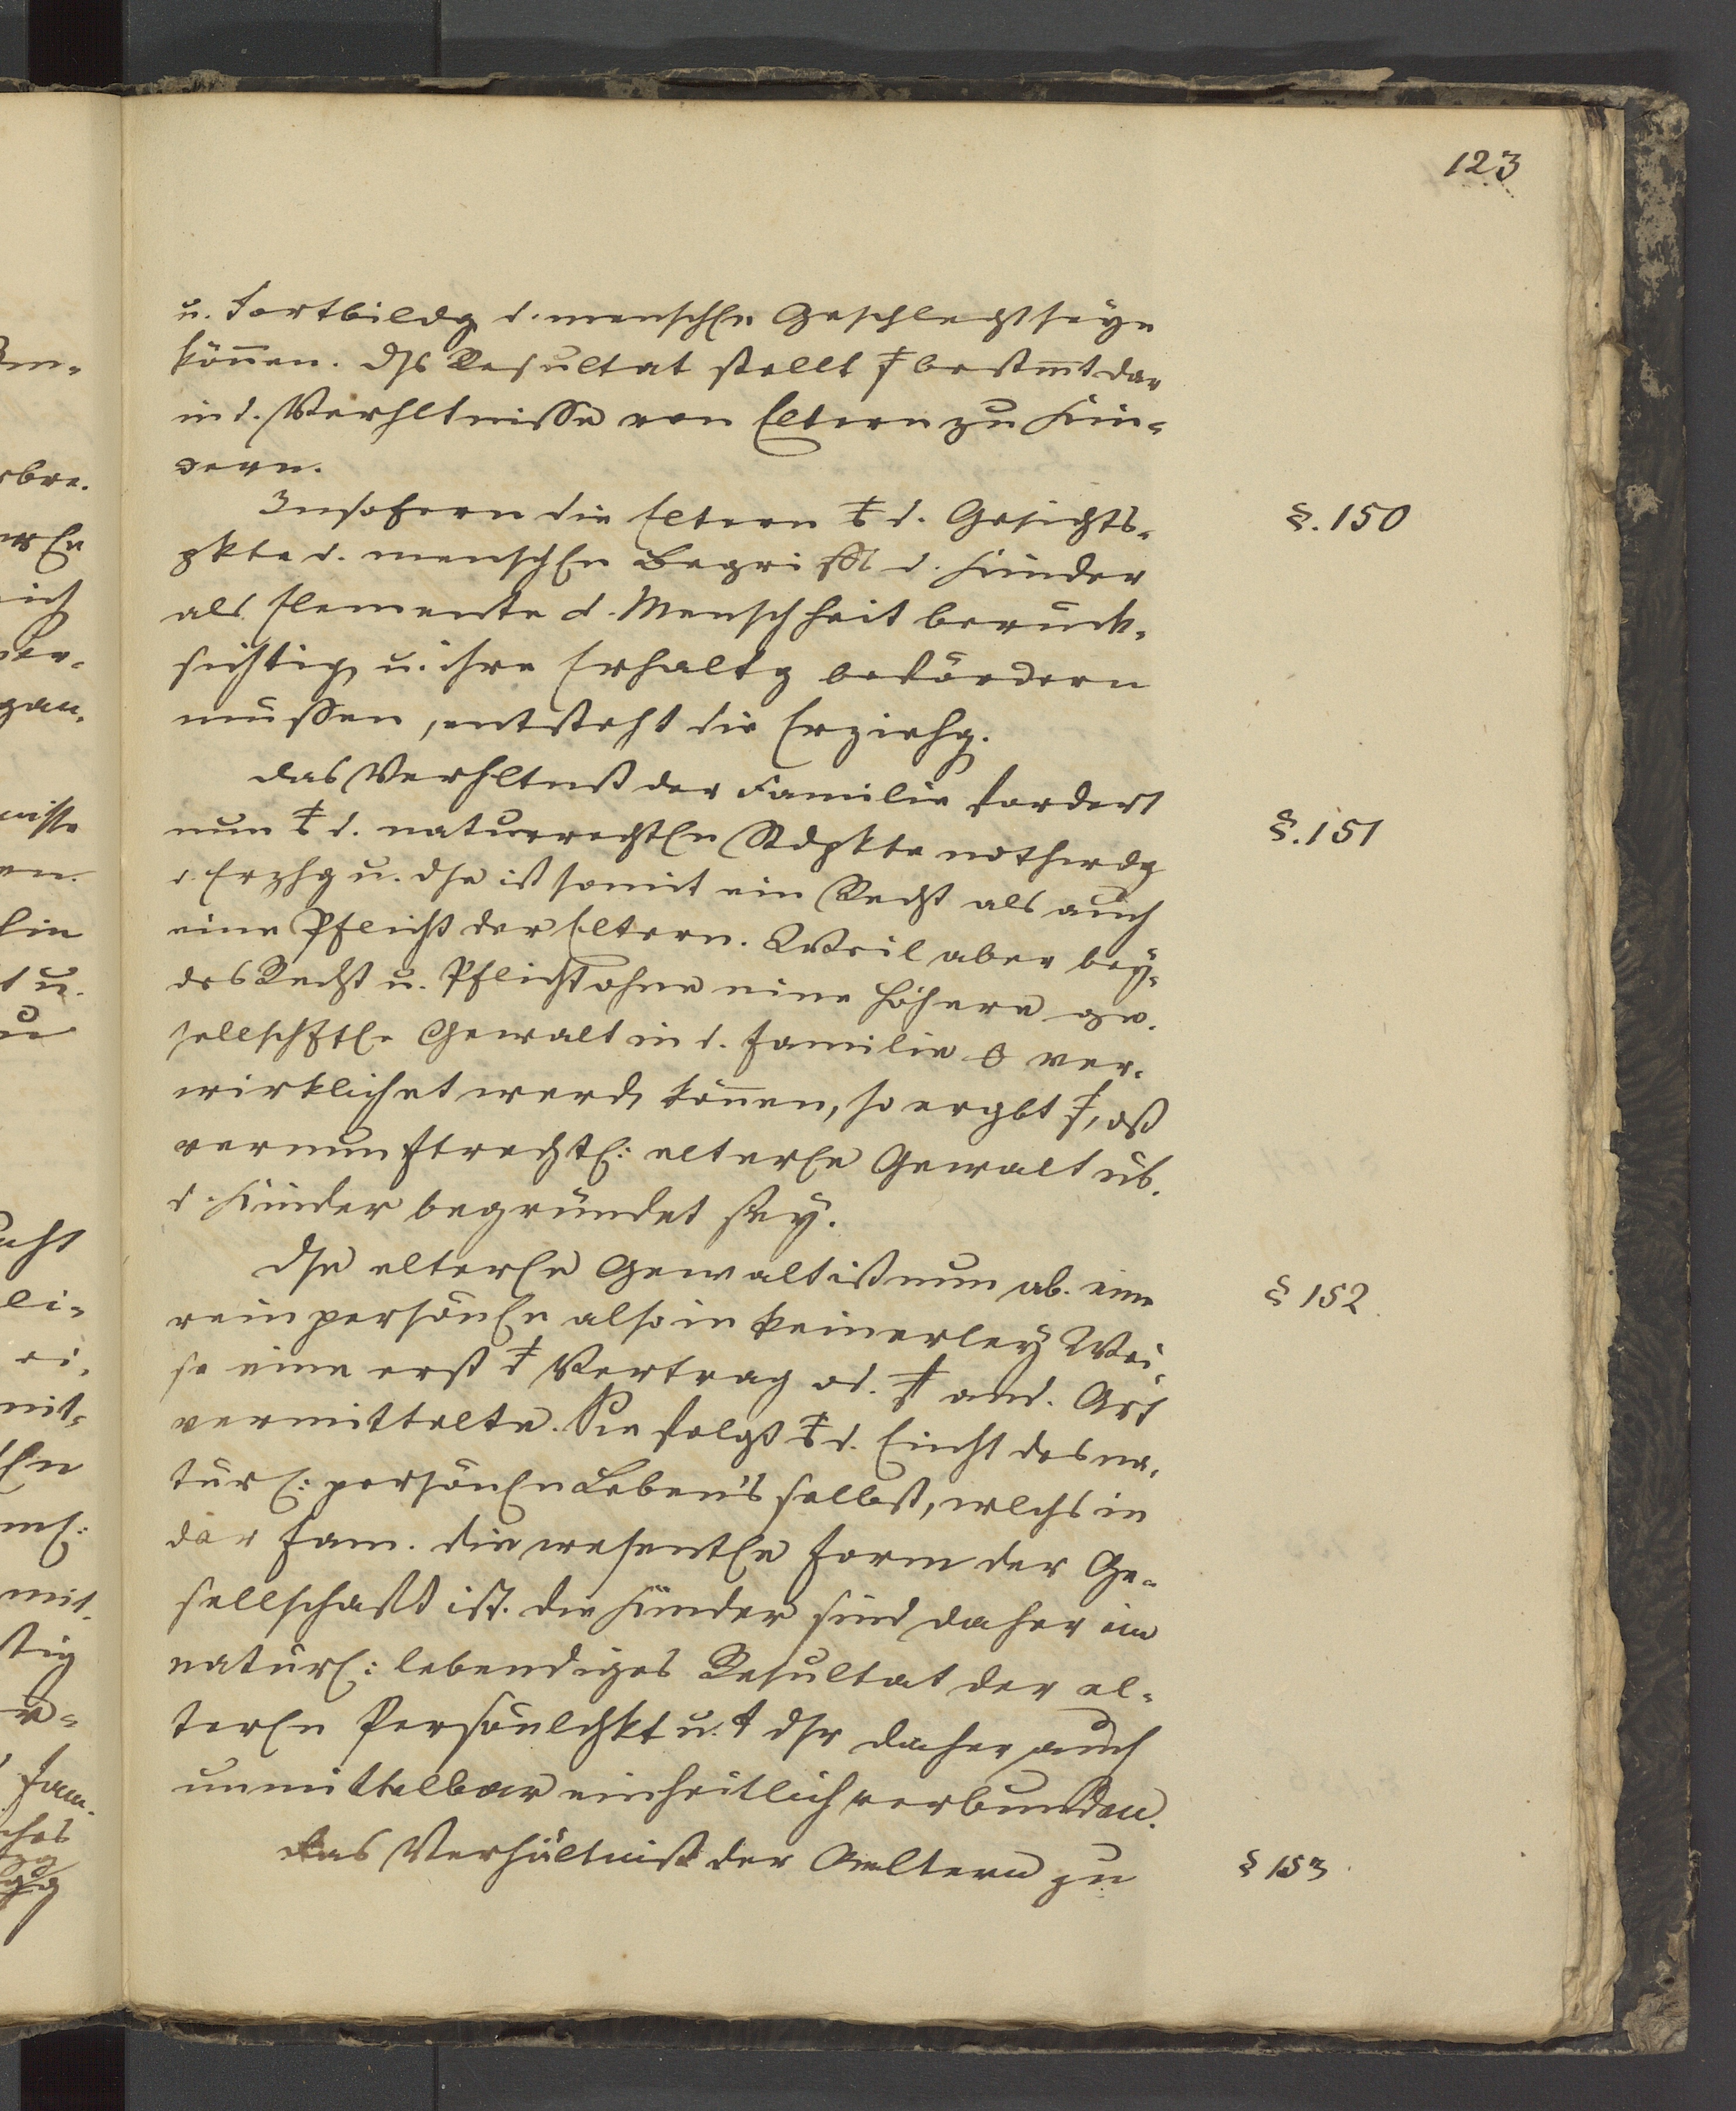 123
u. Fortbildg d. menschln Geschlechts seyn
können. Dss Resultat stellt bestimt dar
in d. Verhltnisse von Eltern zu Kin-
dern.
§. 150
Insofern die Eltern d. Gesichts-
pkte d. menschln Begriffs d. Kinder
als Elemente d. Menschheit berück-
sichtig u. ihre Erhaltg befördern
müssen, entsteht die Erziehg.
§. 151
Das Verhltniß der Familie fordert
nun d. naturrechtln Stdpkte nothwdg
d. Erzhg u. dse ist somit ein Recht als auch
eine Pflicht der Eltern. Weil aber bey-
des Recht u. Pflicht ohne eine höhere ge-
sellschftle Gewalt in d. Familie ver-
wirklichet werd können, so ergbt, dß
vernunftrechtl: elterle Gewalt üb.
d. Kinder begründet sey.
§ 152
Dse elterle Gewalt ist nun ab. eine
rein persönle also in keinerley Wei-
se eine erst Vertrag od. and. Art
vermittelte. Sie folgt d. Einht des na-
türl: persönln Leben's selbst, wlchs in
der Fam. die wesentle Form der Ge-
sellschaft ist. Die Kinder sind daher ein
natürl: lebendiges Resultat der el-
terln Persönlchkt u. dsr daher auch
unmittelbar einheitlich verbunden.
§ 153
Das Verhältniß der Aeltern zu